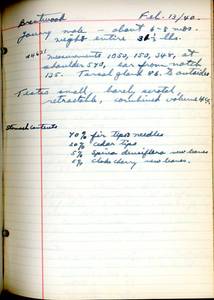 Brentwood Feb. 13/40.
Young male about 6-8 mos.
weight entire 36½ lbs.
Measurements 1050, 150, 348, at
shoulder 590, ear from notch
135. Tarsal gland 46. to outside
Testes small, barely scrotal,
retractable, combined volume 4cc
Stomach contents
40% fir tips needles
50% cedar tips
5% Spirea densiflora new leaves
5% choke cherry new leaves.